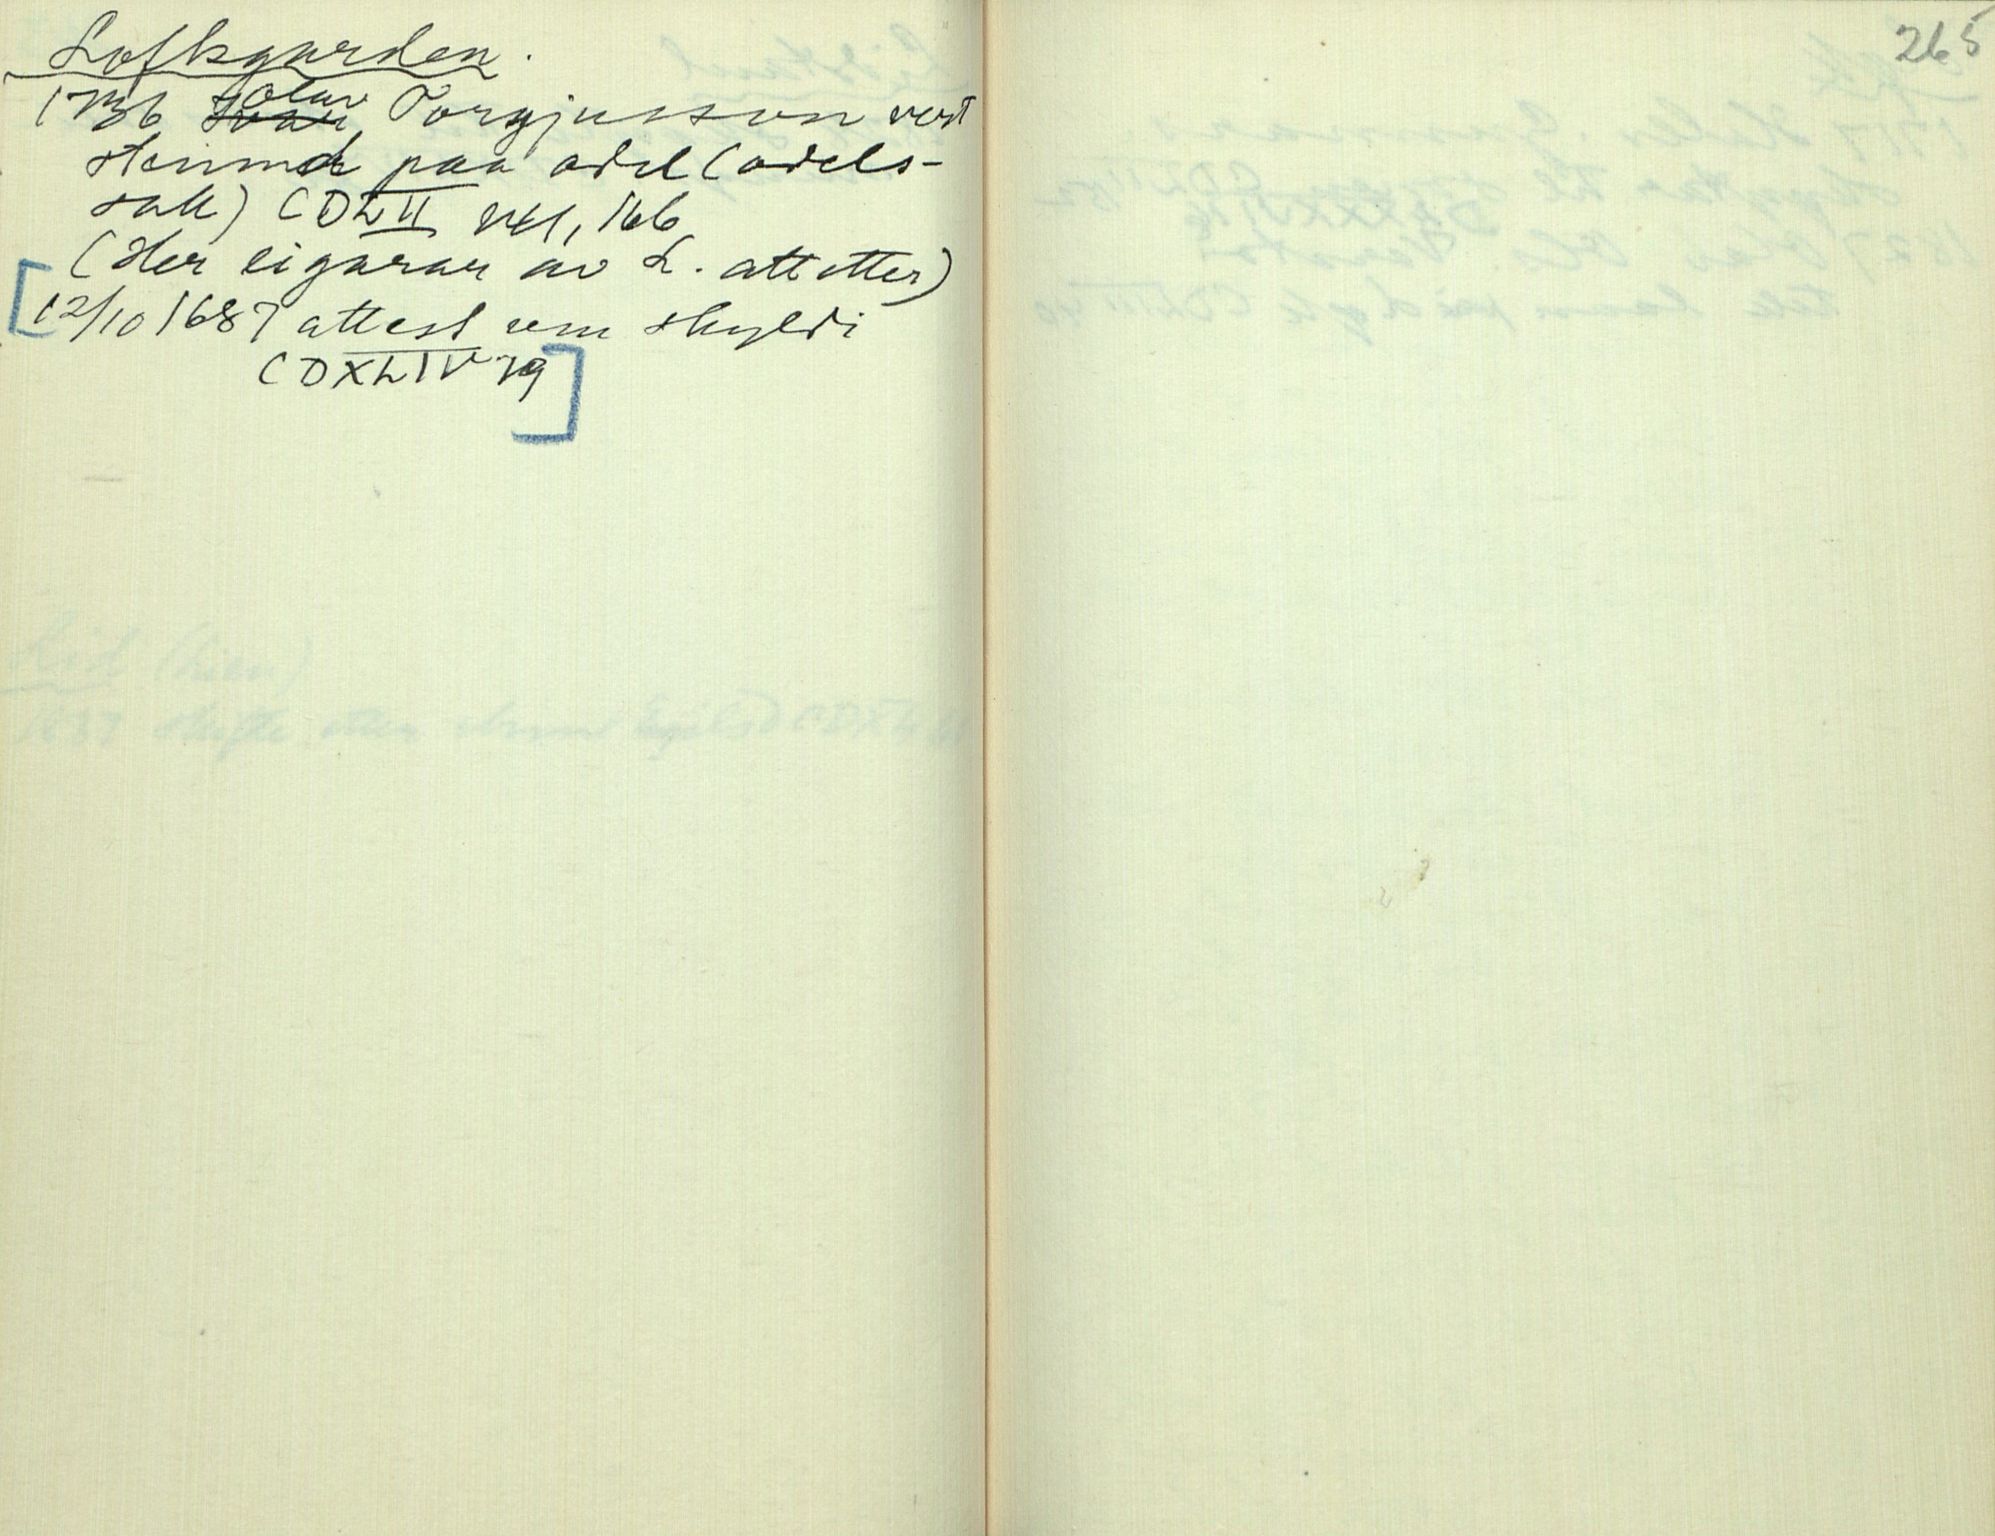 Loftsgarden.
1736 Olav Torgjusson vert
stemnd paa odel (odels-
sak) CDLII 141, 166
(Her eigarar av L. att etter)
[12/10 1687 attest um skyldi
CDXLIV 79]
265